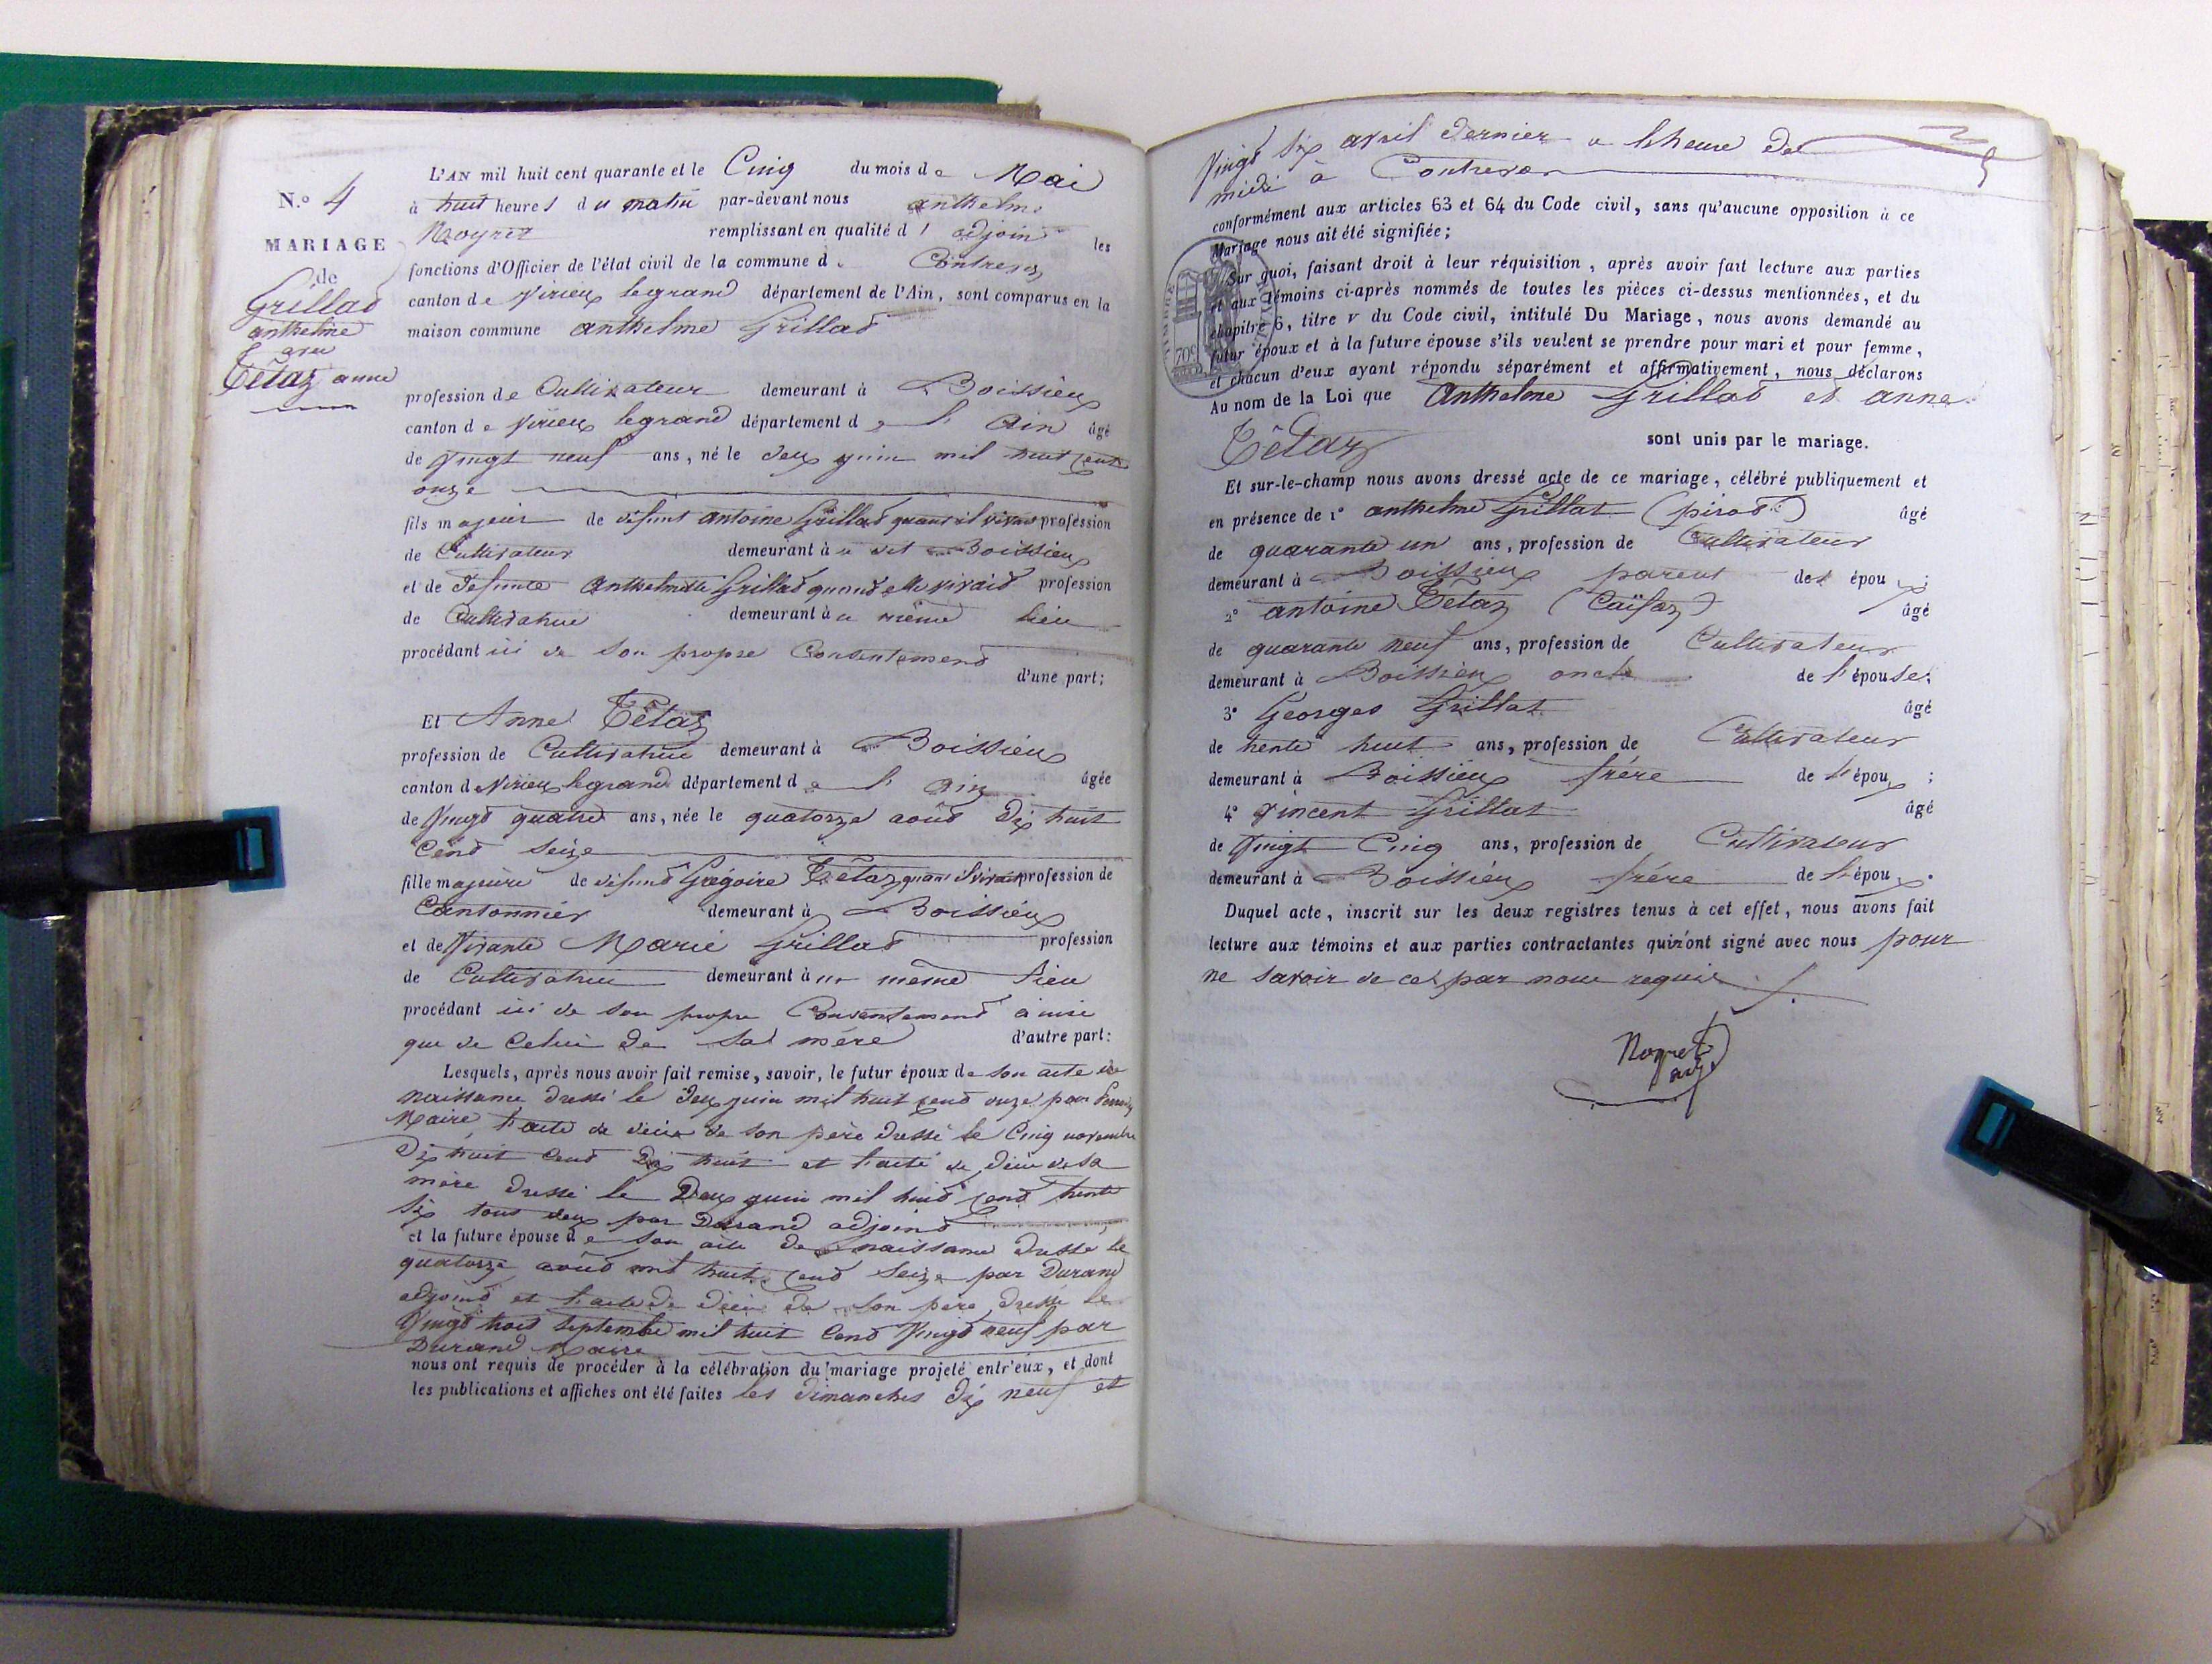 N.° 4
MARIAGE
de
Grillat
anthelme
avec
Tétaz anne
L'AN mil huit cent quarante et le Cinq du mois de Mai
à huit heures du matin par-devant nous anthelme
Noyret remplissant en qualité d' adjoint les
fonctions d'Officier de l'état civil de la commune de Contrevoz
canton de virieu legrand département de l'Ain, sont comparus en la
maison commune anthelme Grillat
profession de Cultivateur demeurant à Boissieu
canton de virieu legrand département de l' Ain âgé
de vingt neuf ans, né le deux juin mil huit cent
onze
fils majeur de défunt antoine Grillat quand il vivait profession
de Cultivateur demeurant à dit Boissieu
et de défunte anthelmette Grillat quand elle vivait profession
de Cultivatrice demeurant au même lieu
procédant ici de son propre Consentement
d'une part;
Et Anne Tétaz
profession de Cultivatrice demeurant à Boissieu
canton de virieu legrand département de l' ain âgée
de vingt quatre ans, née le quatorze août dix huit
cent seize
fille majeure de défunt Grégoire Tétaz quand il vivait profession de
Cantonnier demeurant à Boissieu
et de vivante Marie Grillat profession
de Cultivatrice demeurant au même lieu
procédant ici de son propre Consentement ainsi
que de celui de sa mère d'autre part:
Lesquels, après nous avoir fait remise, savoir, le futur époux de son acte de
naissance dressé le deux juin mil huit cent onze par
Maire l'acte de décès de son père dressé le Cinq novembre
dix huit cent dix huit et l'acte de décès de sa
mère dressé le deux juin mil huit cent trente
six tous deux par Durand adjoint
et la future épouse de son acte de naissance dressé le
quatorze août mil huit cent seize par Durand
adjoint et l'acte de décès de son père dressé le
vingt trois septembre mil huit cent vingt neuf par
Durand Maire
nous ont requis de procéder à la célébration du mariage projeté entr'eux, et dont
les publications et affiches ont été faites les dimanches dix neuf et
vingt six avril dernier a lheure de
midi à Contrevoz
conformément aux articles 63 et 64 du Code civil, sans qu'aucune opposition à ce
Mariage nous ait été signifiée;
Sur quoi, faisant droit à leur réquisition, après avoir fait lecture aux parties
et aux témoins ci-après nommés de toutes les pièces ci-dessus mentionnées, et du
chapitre 6, titre v du Code civil, intitulé Du Mariage, nous avons demandé au
futur époux et à la future épouse s'ils veulent se prendre pour mari et pour femme,
et chacun d'eux ayant répondu séparément et affirmativement, nous déclarons
Au nom de la Loi que Anthelme Grillat et anne
Tétaz sont unis par le mariage.
Et sur-le-champ nous avons dressé acte de ce mariage, célébré publiquement et
en présence de 1° anthelme Grillat (pirod) âgé
de quarante un ans, profession de Cultivateur
demeurant à Boissieu parent des époux;
2° antoine Tétaz (Caïfaz) âgé
de quarante neuf ans, profession de Cultivateur
demeurant à Boissieu oncle de l'épouse;
3° Georges Grillat âgé
de trente huit ans, profession de Cultivateur
demeurant à Boissieu frère de l'époux;
4° vincent Grillat âgé
de vingt Cinq ans, profession de Cultivateur
demeurant à Boissieu frère de l'époux.
Duquel acte, inscrit sur les deux registres tenus à cet effet, nous avons fait
lecture aux témoins et aux parties contractantes qui n'ont signé avec nous pour
ne savoir de ce par nous requis
Noyret
TIMBRE ROYAL
70c